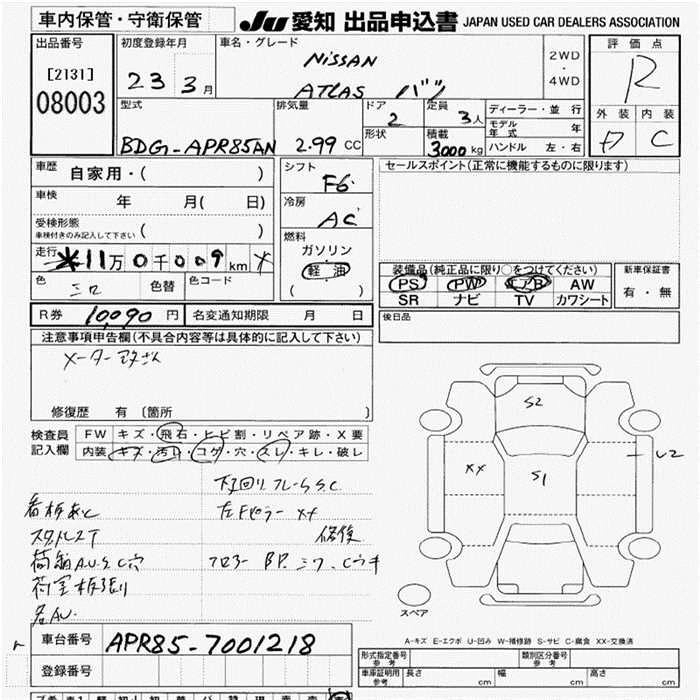 車内保管・守衛保管
JU 愛知 出品申込書 JAPAN USED CAR DEALERS ASSOCIATION
出品番号
[2131]
08003
初度登録年月
23 3月
車名・グレード
NISSAN
ATLAS バン
2WD
・
4WD
評価点
R
外装 内装
C
型式
BDG-APR85AN
排気量
2.99 CC
ドア
2
形状
定員
3人
積載
3000 kg
ディーラー・並 行
モデル年式 年
ハンドル 左・右
車歴
自家用・( )
車検
年 月( 日)
受検形態
車検付きのみ記入して下さい ( )
走行
*11万0千009km *
色
シロ
色替
色コード
シフト
F6
冷房
AC
燃料
ガソリン
軽油
( )
セールスポイント(正常に機能するものに限ります)
装備品(純正品に限り○をつけてください)
PS PW エアB AW
SR ナビ TV カワシート
新車保証書
有・無
後日品
R券 10,090円
名変通知期限 月 日
注意事項申告欄(不具合内容等は具体的に記入して下さい)
修復歴 有 〔箇所 〕
検査員
記入欄
FW キズ・飛石・ヒビ割・リペア跡・X要
内装 キズ・汚レ・コゲ・穴・スレ・キレ・破レ
下回りフレームS.C
看板あと
左Fピラー XX
スタットレスT
修復
荷箱A.U.S.C穴
フロアー BP.シワ.Cウキ
荷室板張り
各AU.
S2
XX
S1
U2
スペア
A-キズ E-エクボ U-凹み W-補修跡 S-サビ C-腐食 XX-交換済
車台番号
APR85-7001218
登録番号
形式指定番号
参考
類別区分番号
参考
車庫証明用
参考
長さ cm
幅 cm
高さ cm